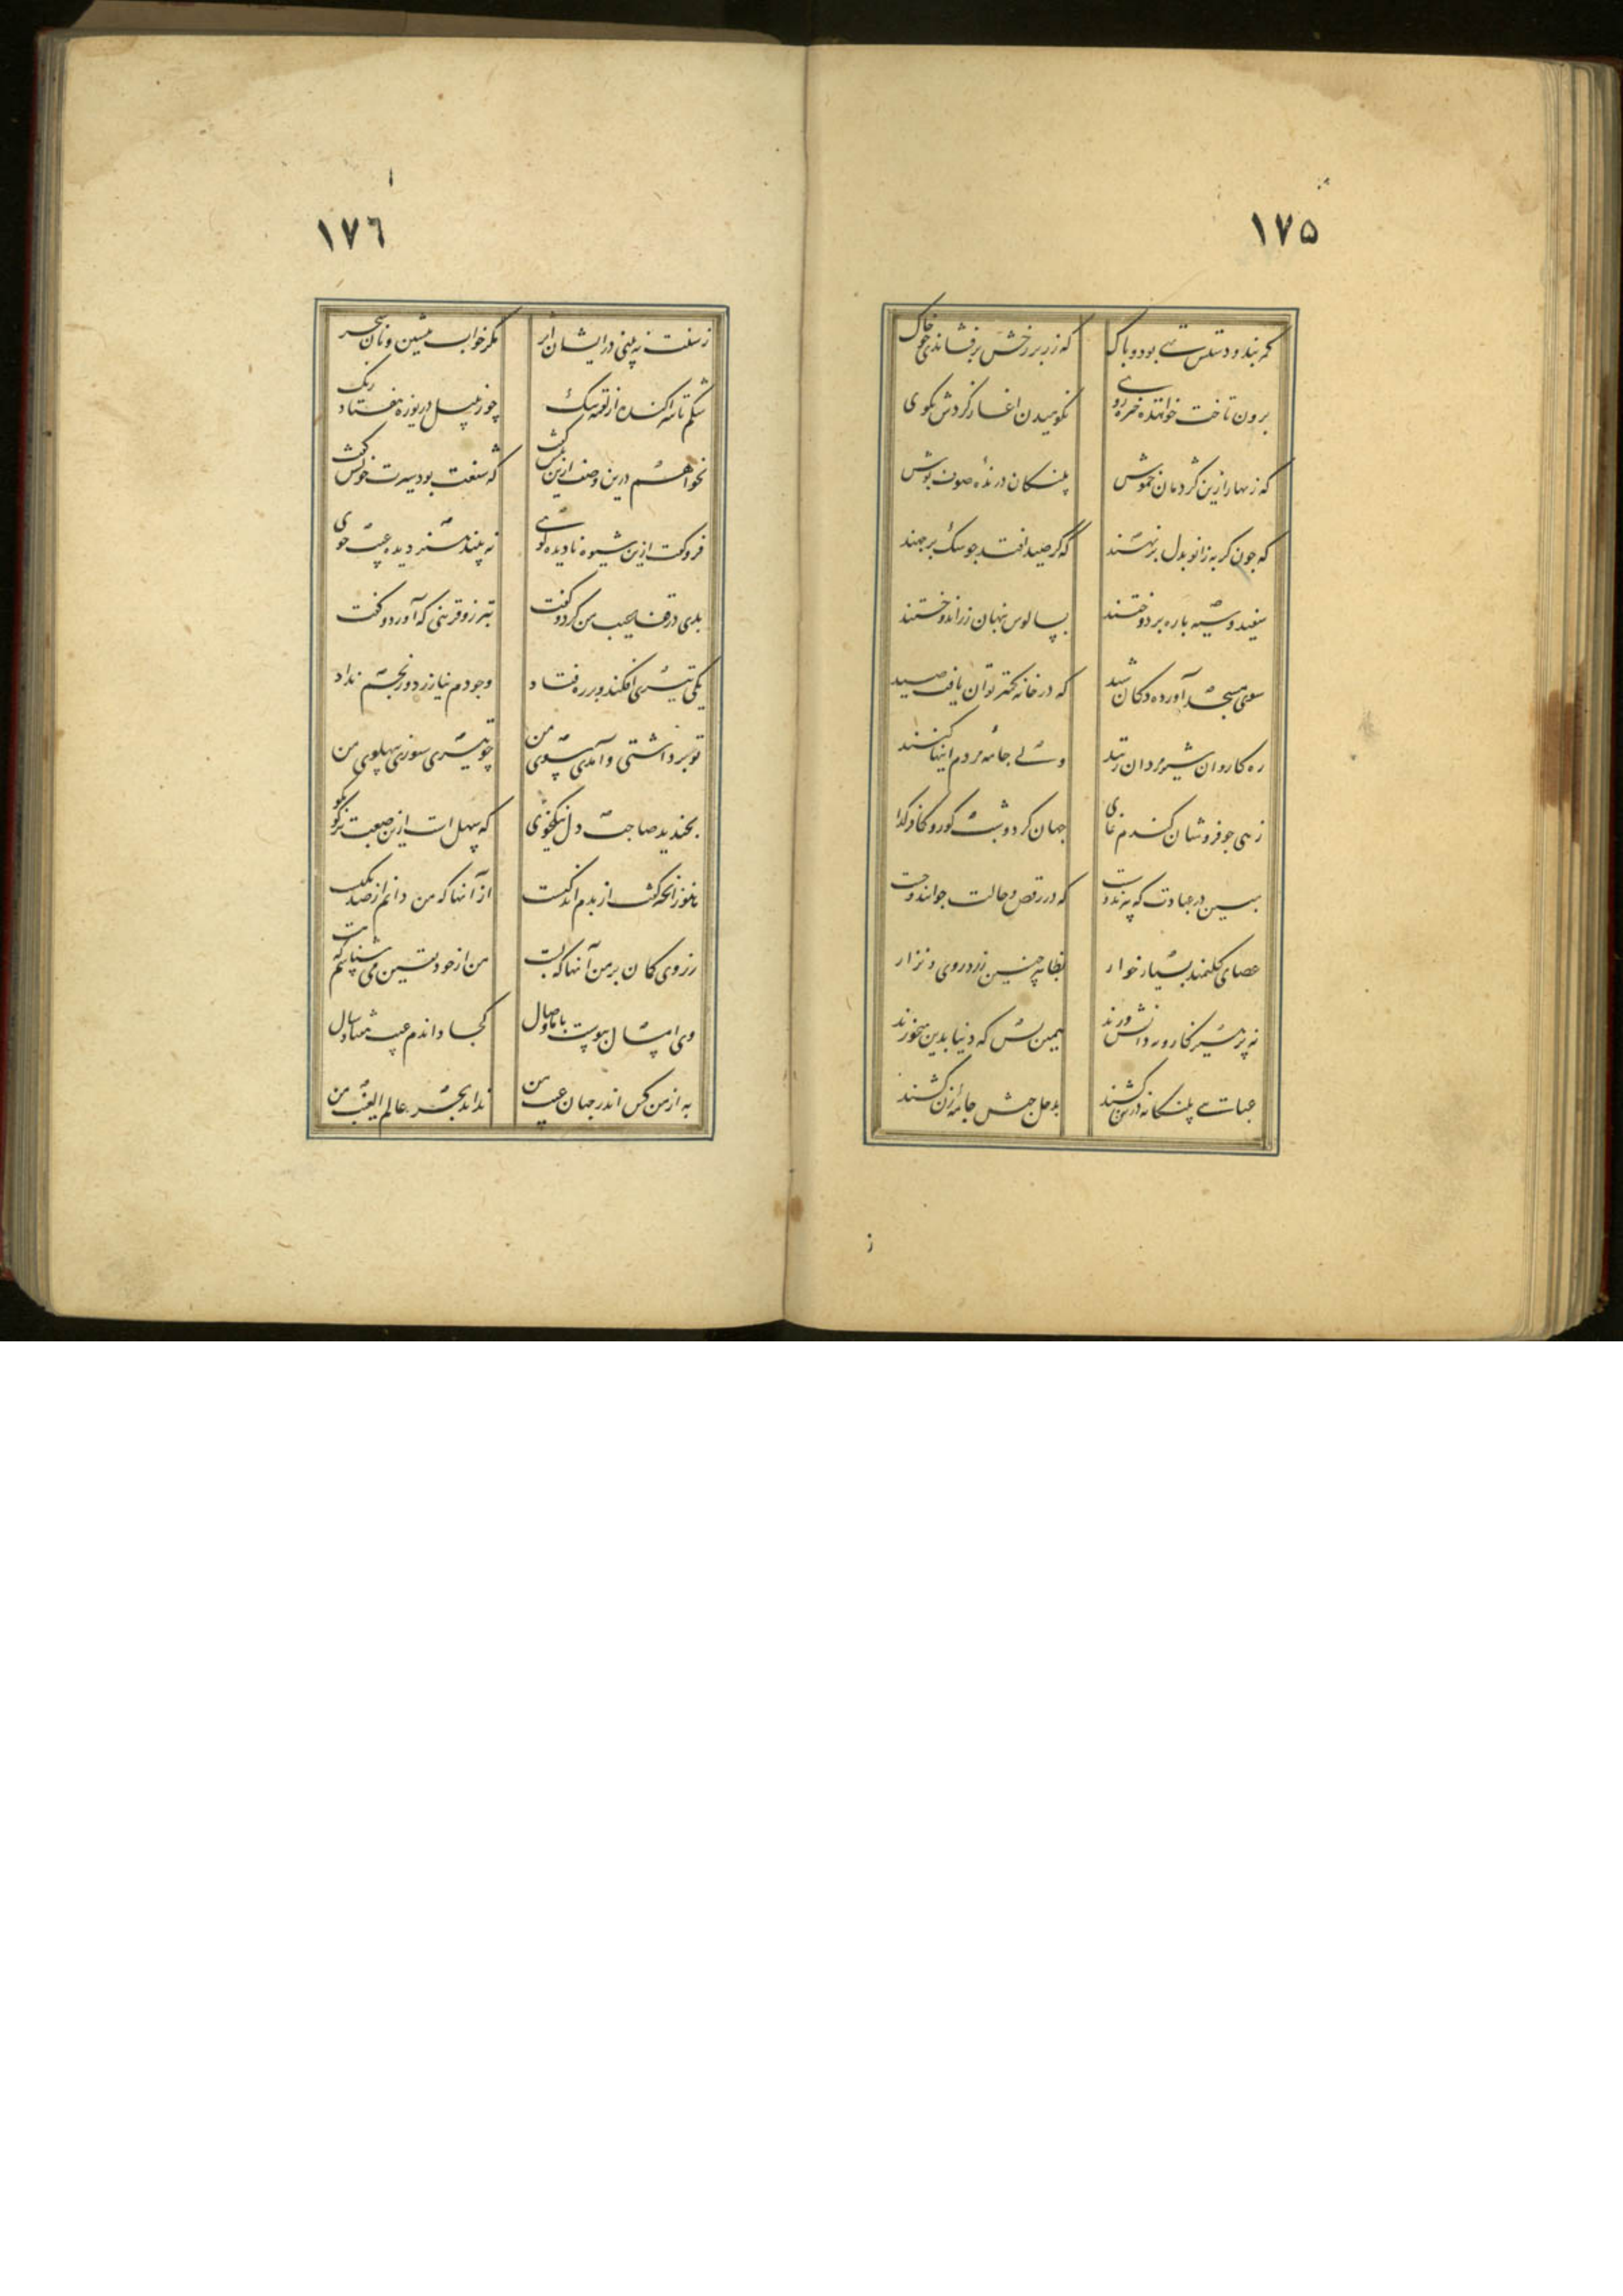 ۱۷۵
کمر بند و دستش تهی بود و پاک که زر بر رخش برفشاندی چو خاک
برون تاخت خواهنده خیره روی نکوهیدن اغاز کردش بکوی
که زنهار ازین کژدمان خموش پلنکان درنده صوف پوش
که چون کربه زانو بدل برنهند که گر صید افتد چو سک برجهند
سفید و سیه پاره بر دوختند بسالوس پنهان زر اندوختند
سوی مسجد آورده دکان شید که در خانه کمتر توان یافت صید
ره کاروان شیرمردان زنند ولی جامه مردم اینها کنند
زهی جو فروشان کندم نمای جهان کرد و شب کور و کدا
مبین در عبادت که پیرند و سست که در رقص و حالت جوانند و چست
عصای کلیمند بسیار خوار بظاهر چنین زرد روی و نزار
نه پرهیزکار و نه دانشورند همین بس که دنیا بدین میخورند
عبائی پلنکانه در تن کشند بدخل حبش جامه زن کشند
۱۷۶
ز سنت نه بینی در ایشان اثر مکر خواب پیشین و نان سحر
شکم تا سر آکنده از لقمه تنک چو زنبیل دریوزه هفتاد رنک
نخواهم درین وصف ازین بیش کفت که شنعت بود سیرت خویش کفت
فرو کفت ازین شیوه نادیده کوی نه بیند هنر دیده عیب جوی
بلی در قفا عیب من کرد و خفت بتر زو قرینی که آورد و کفت
یکی تیری افکند و در ره فتاد وجودم نیازرد و رنجم نداد
تو برداشتی و آمدی سوی من چو تیری سوزی پهلوی من
بخندید صاحب دل نیکخوی که سهل است ازین صعبتر کو بکو
هنوز انچه کفت از بدم اندکیست از آنها که من دانم از صد یکیست
ز روی کمان بر من آنها که بست من از خود یقین می شناسم که هست
وی امسال پیوست با ما وصال کجا داندم عیب هفتاد سال
به از من کس اندر جهان عیب من نداند بجز عالم الغیب من